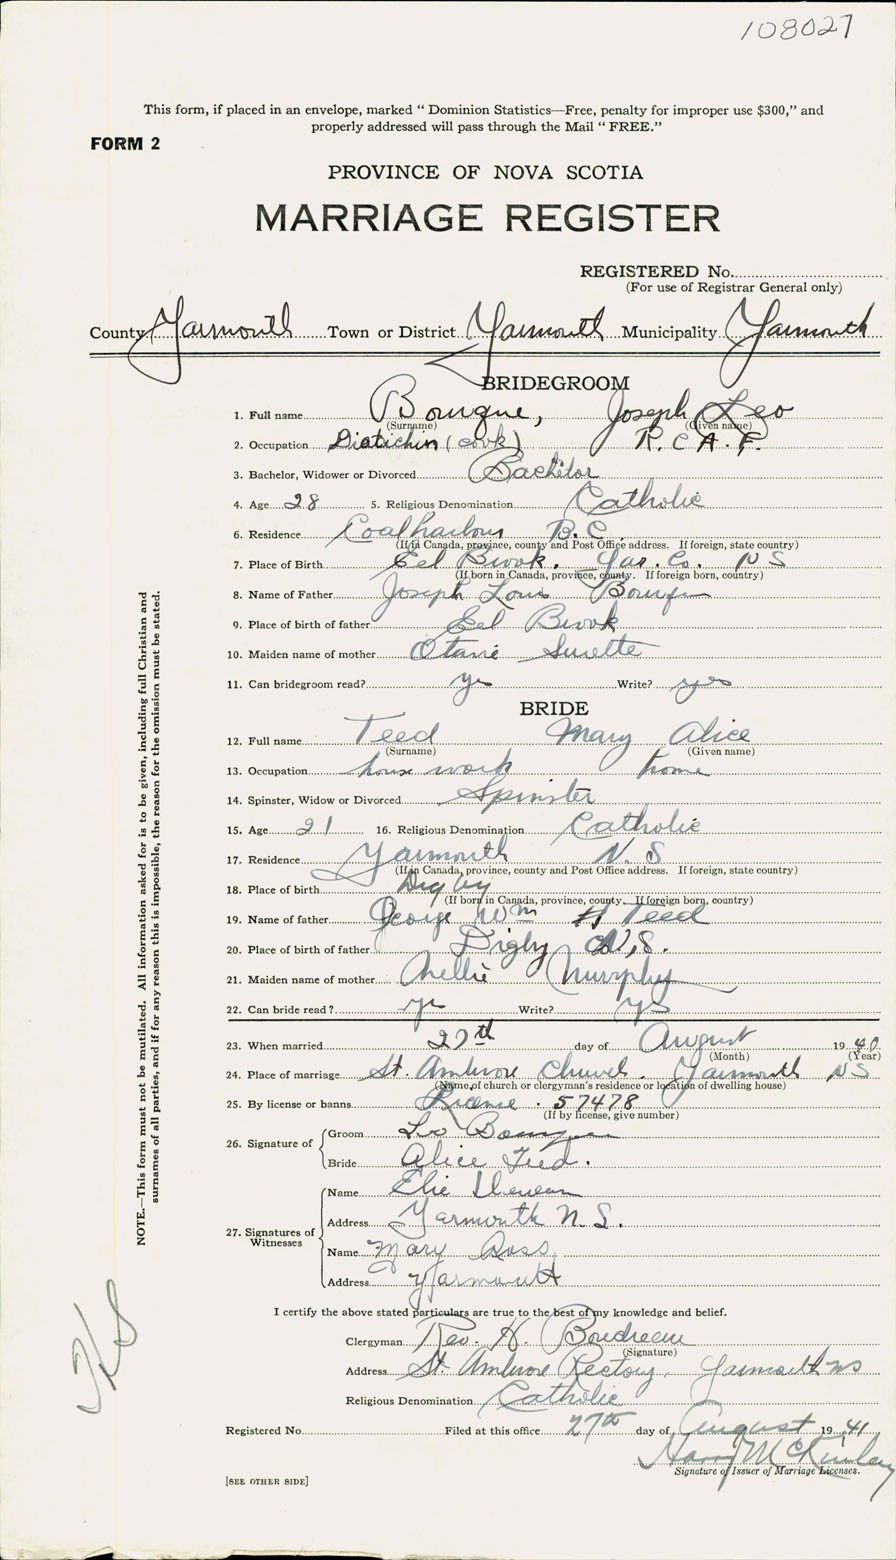 108027
This form, if placed in an envelope, marked “ Dominion Statistics—Free, penalty for improper use $300,” and
properly addressed will pass through the Mail “ FREE.”
FORM 2
PROVINCE OF NOVA SCOTIA
MARRIAGE REGISTER
REGISTERED No.
(For use of Registrar General only)
County Yarmouth Town or District Yarmouth Municipality Yarmouth
BRIDEGROOM
1. Full name Bourque, Joseph Leo
(Surname) (Given name)
2. Occupation Diatichin (cook) R.C.A.F.
3. Bachelor, Widower or Divorced Bachelor
4. Age 28 5. Religious Denomination Catholic
6. Residence Coalharbour B.C.
(If in Canada, province, county and Post Office address. If foreign, state country)
7. Place of Birth Eel Brook. Yar. Co. N S
(If born in Canada, province, county. If foreign born, country)
8. Name of Father Joseph Louis Bourque
9. Place of birth of father Eel Brook
10. Maiden name of mother Otanie Surette
11. Can bridegroom read? yes Write? yes
BRIDE
12. Full name Teed Mary Alice
(Surname) (Given name)
13. Occupation house work home
14. Spinster, Widow or Divorced Spinster
15. Age 21 16. Religious Denomination Catholic
17. Residence Yarmouth N. S
(If in Canada, province, county and Post Office address. If foreign, state country)
18. Place of birth Digby
(If born in Canada, province, county. If foreign born, country)
19. Name of father George Wm H Teed
20. Place of birth of father Digby N.S.
21. Maiden name of mother Nellie Murphy
22. Can bride read? yes Write? yes
23. When married 27th day of August 1940
(Month) (Year)
24. Place of marriage St. Ambrose Church. Yarmouth NS
(Name of church or clergyman's residence or location of dwelling house)
25. By license or banns License . 57478
(If by license, give number)
26. Signature of Groom Leo Bourque
Bride Alice Teed.
27. Signatures of Witnesses
Name Elie
Address Yarmouth N.S.
Name Mary Ross
Address Yarmouth
I certify the above stated particulars are true to the best of my knowledge and belief.
Clergyman Rev. H. Boudreau
(Signature)
Address St. Ambrose Rectory, Yarmouth NS
Religious Denomination Catholic
Registered No. Filed at this office 27th day of August 1941
Harry McKinlay
Signature of Issuer of Marriage Licenses.
[SEE OTHER SIDE]
NOTE.—This form must not be mutilated. All information asked for is to be given, including full Christian and
surnames of all parties, and if for any reason this is impossible, the reason for the omission must be stated.